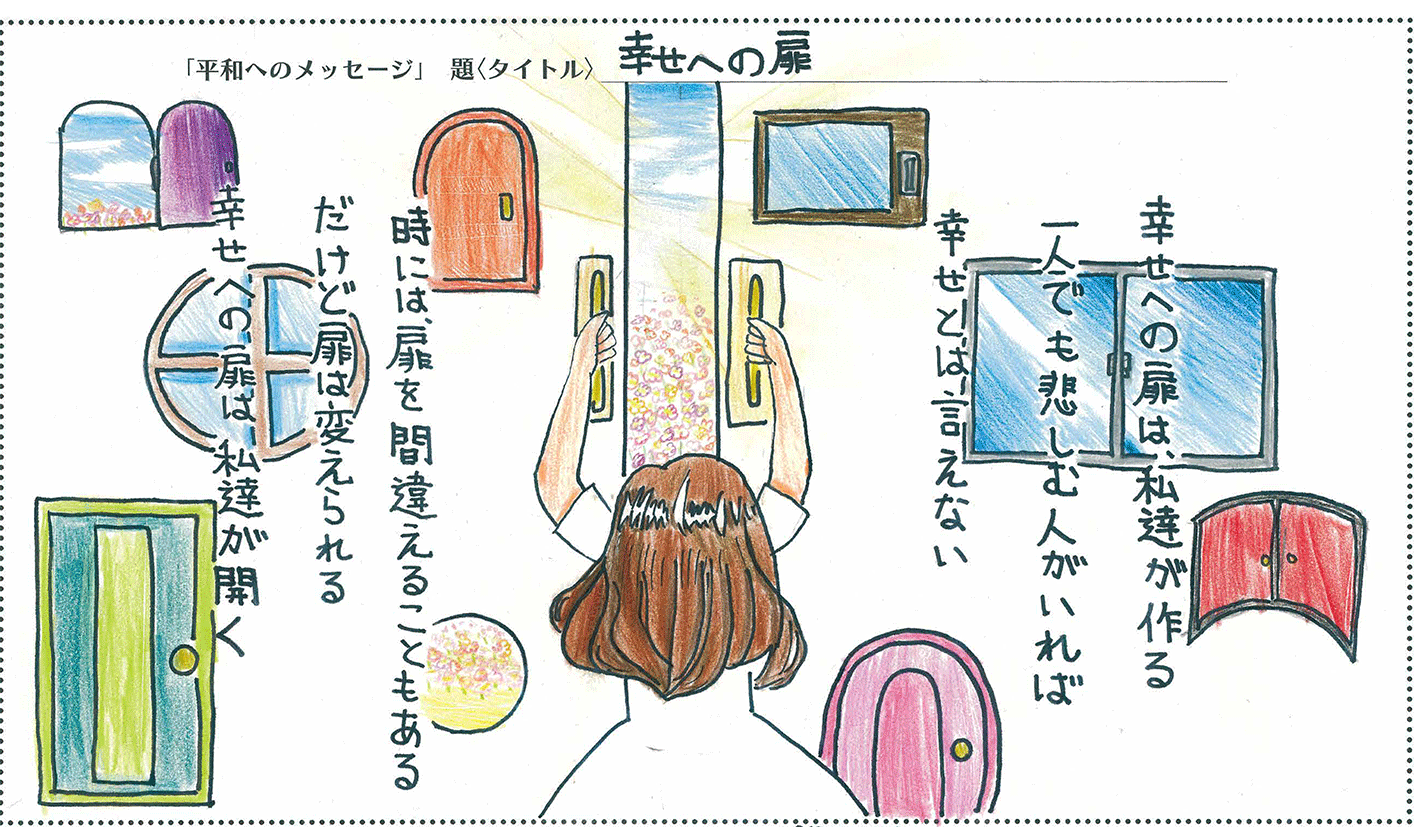 「平和へのメッセージ」 題〈タイトル〉 幸せへの扉
幸せへの扉は、私達が作る
一人でも悲しむ人がいれば
幸せとは、言えない
時には、扉を間違えることもある
だけど扉は変えられる
幸せへの扉は、私達が開く